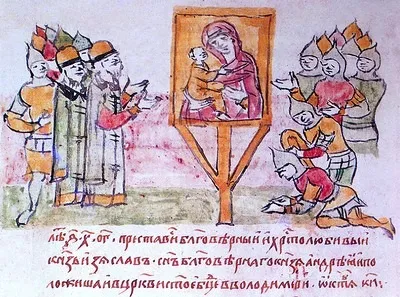 лѣ ҂ѕ · х · ог · пристави блговѣрныи ихрстолюбивыи
кнзь изяславъ · снъ блговѣрнаго кнзя андрѣя ипо
ложиша и вцркви стоѣ бцѣ вволодимири · кн ·